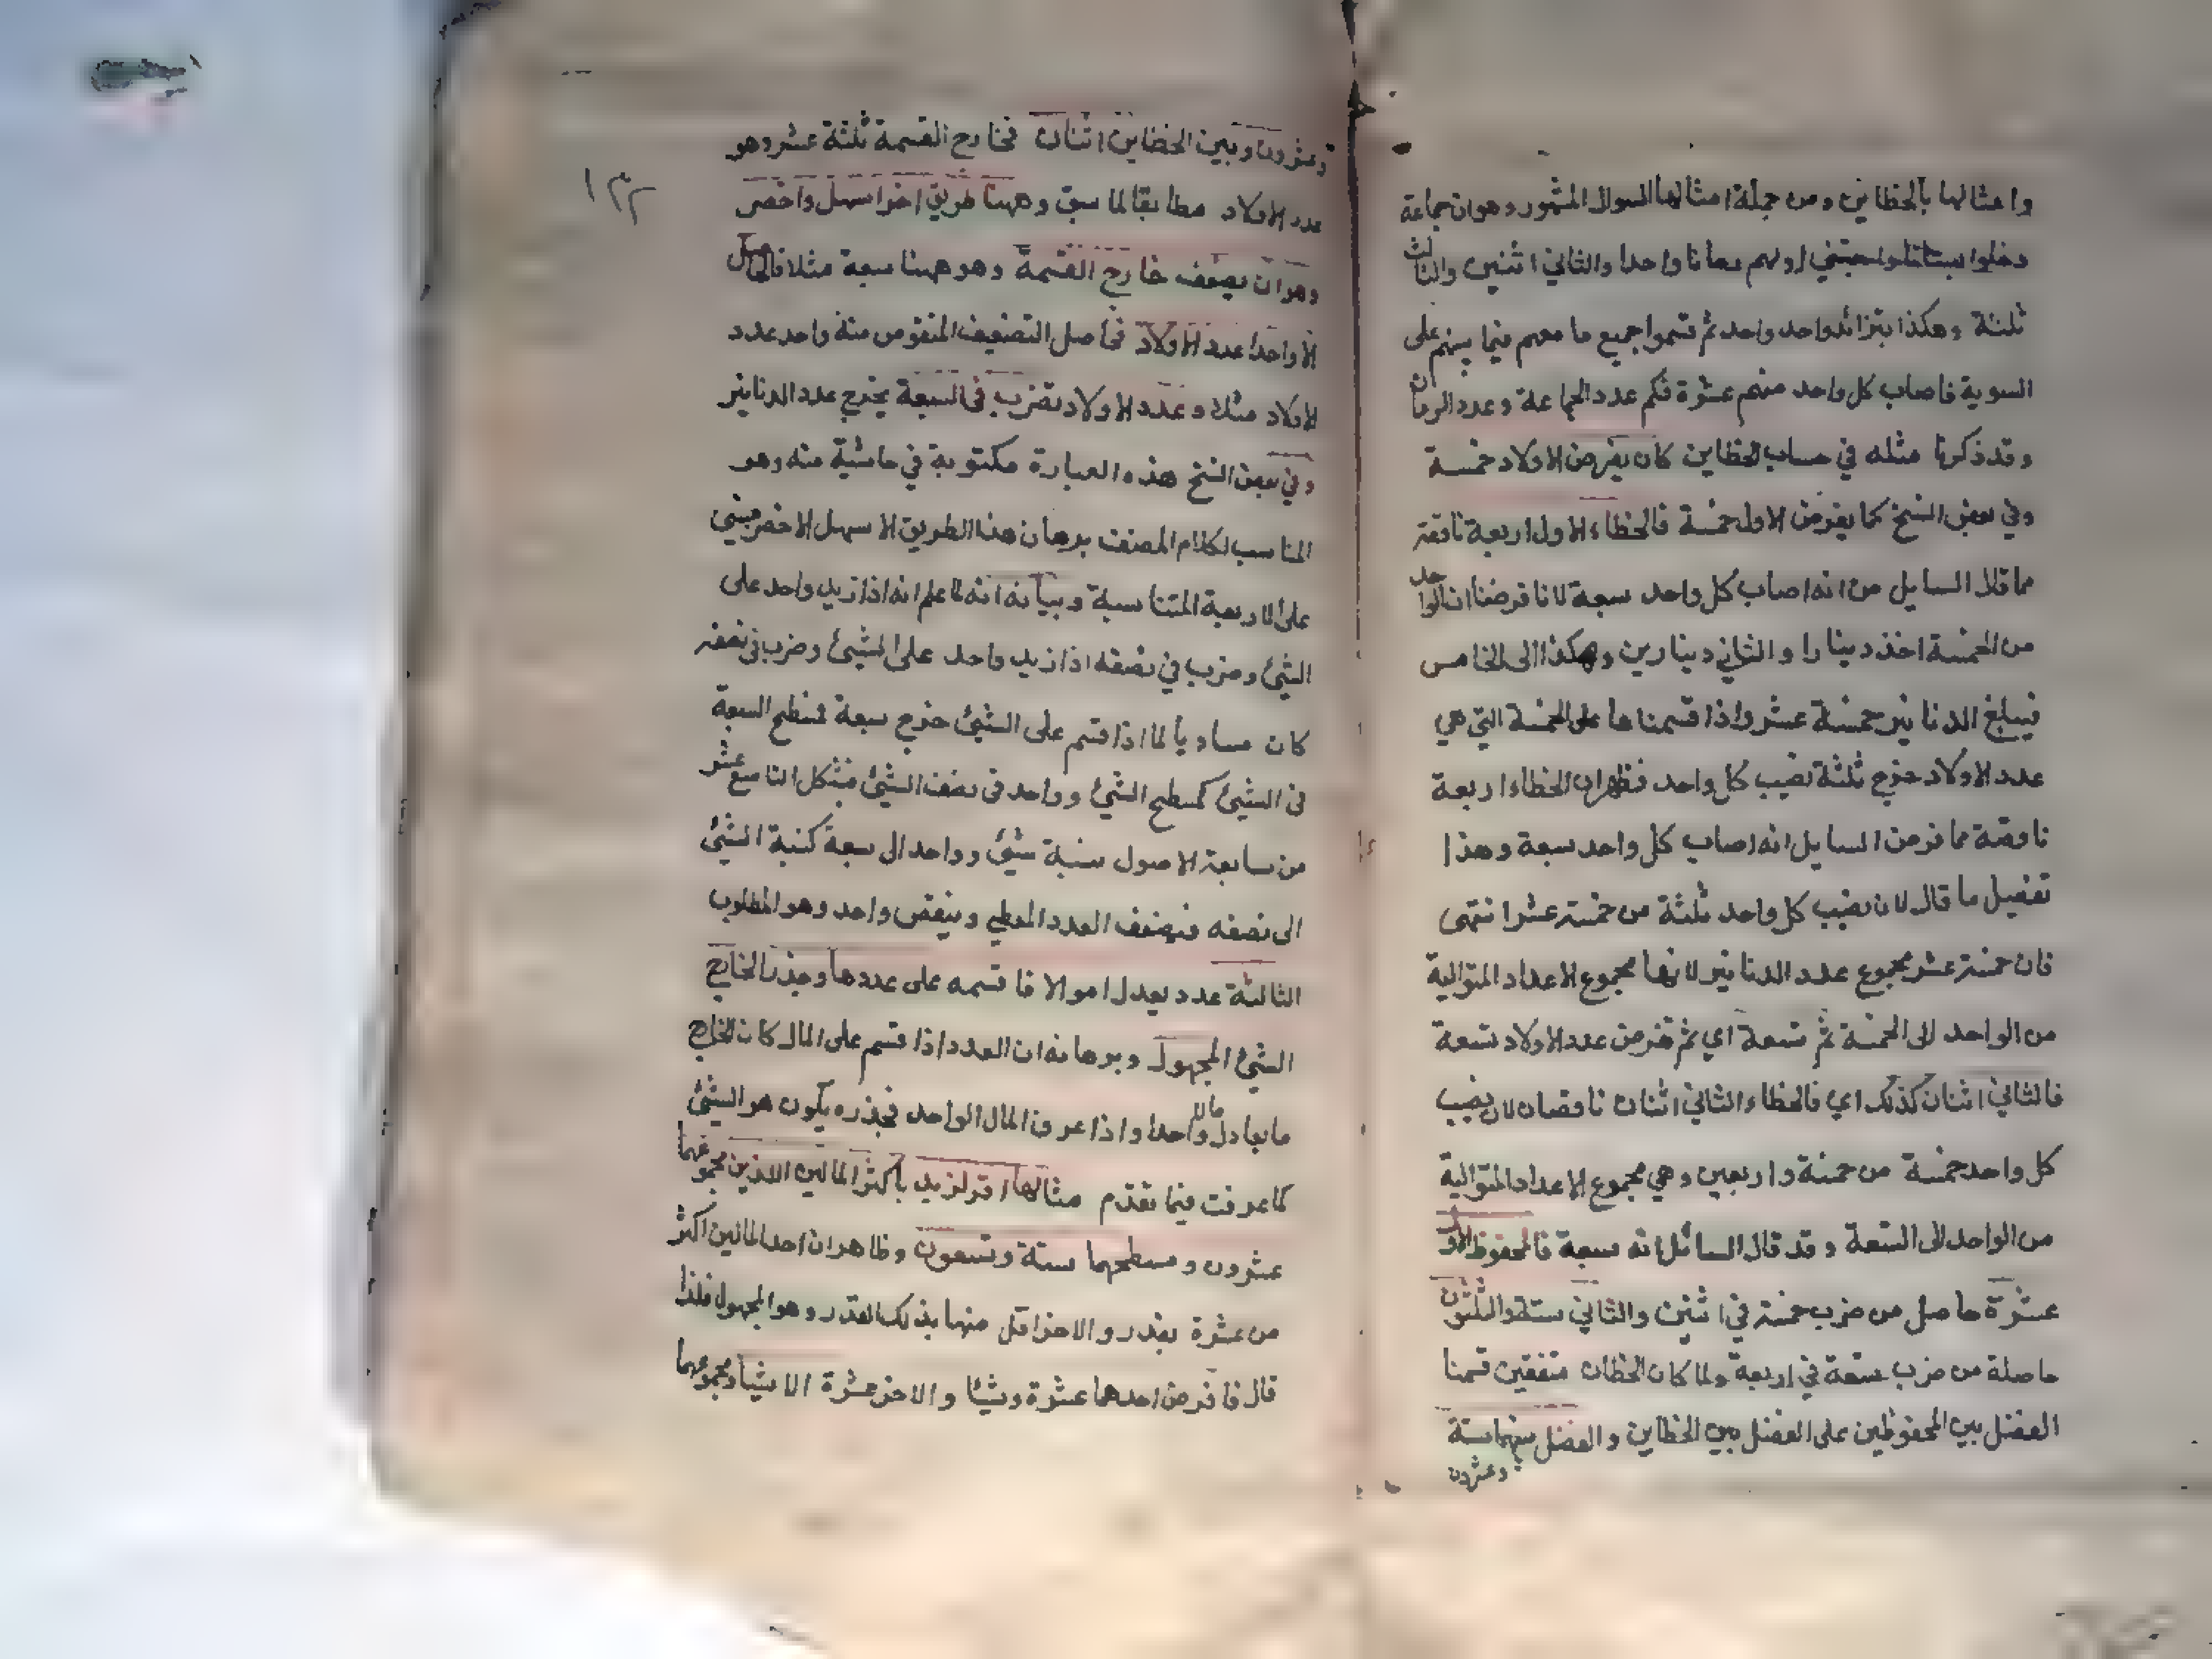 وامثالها بالخطاين ومن جملة امثالها السوال المشهور وهو ان جماعة
دخلوا بستانا واجتنى اولهم رمانا واحدا والثاني اثنين والثالث
ثلثة وهكذا بتزائد واحد واحد ثم قسموا جميع ما معهم فيما بينهم على
السوية فاصاب كل واحد منهم عشرة فكم عدد الجماعة وعدد الرمان
وقد ذكرنا مثله في حساب الخطاين كان يفرض الاولاد خمسة
وفي بعض النسخ كما يفرض الاول خمسة فالخطاء الاول اربعة ناقصة
مما قال السايل من انه اصاب كل واحد سبعة لانا فرضنا ان الواحد
من الخمسة اخذ دينارا والثاني دينارين وهكذا الى الخامس
فيبلغ الدنانير خمسة عشر واذا قسمناها على الخمسة التي هي
عدد الاولاد خرج ثلثة نصيب كل واحد فظهر ان الخطاء اربعة
ناقصة مما فرض السايل انه اصاب كل واحد سبعة وهذا
تفصيل ما قال لان نصيب كل واحد ثلثة من خمسة عشر انتهى
فان خمسة عشر مجموع عدد الدنانير لانها مجموع الاعداد المتوالية
من الواحد الى الخمسة ثم تسعة اي ثم تفرض عدد الاولاد تسعة
فالثاني اثنان كذلك اي فالخطاء الثاني اثنان ناقصان لان نصيب
كل واحد خمسة من خمسة واربعين وهي مجموع الاعداد المتوالية
من الواحد الى التسعة وقد قال السائل انه سبعة فالمحفوظ الاول
عشرة حاصل من ضرب خمسة في اثنين والثاني ستة والثلثون
حاصلة من ضرب تسعة في اربعة ولما كان الخطان متفقين قسمنا
الفضل بين المحفوظين على الفضل بين الخطاين والفضل بينهما ستة
وعشرون
وعشرون وبين الخطاين اثنان فخارج القسمة ثلثة عشر وهو
عدد الاولاد مطابقا لما سبق وههنا طريق اخر اسهل واخصر
١٣٢
وهو ان يضعف خارج القسمة وهو ههنا سبعة مثلا فالحاصل
الا واحدا عدد الاولاد فحاصل التضعيف المنقوص منه واحد عدد
الاولاد مثلا وعدد الاولاد تضرب في السبعة يخرج عدد الدنانير
وفي بعض النسخ هذه العبارة مكتوبة في حاشية منه وهو
المناسب لكلام المصنف برهان هذا الطريق الاسهل الاخصر مبتني
على الاربعة المتناسبة وبيانه انه لما علم انه اذا زيد واحد على
الشيئ وضرب في نصفه اذا زيد واحد على الشيئ وضرب في نصفه
كان مساويا لما اذا قسم على الشيئ خرج سبعة فسطح السبعة
في الشيئ كمسطح الشيئ وواحد في نصف الشيئ فبشكل التاسع عشر
من سابعة الاصول نسبة شيئ وواحد الى سبعة كنسبة الشيئ
الى نصفه فيضعف العدد المعطى وينقص واحد وهو المطلوب
الثالثة عدد يعدل اموالا فاقسمه على عددها وجذر الخارج
الشيئ المجهول وبرهانه ان العدد اذا قسم على المال كان الخارج
ما يعادل مالا واحدا واذا عرف المال الواحد فجذره يكون هو الشيئ
كما عرفت فيما تقدم مثالها اقر لزيد باكثر المالين اللذين مجموعهما
عشرون ومسطحهما ستة وتسعون وظاهر ان احد المالين اكثر
من عشرة بقدر والاخر اقل منها بذلك القدر وهو المجهول فلذا
قال فافرض احدهما عشرة وشيئا والاخر عشرة الا شيئا ومجموعهما